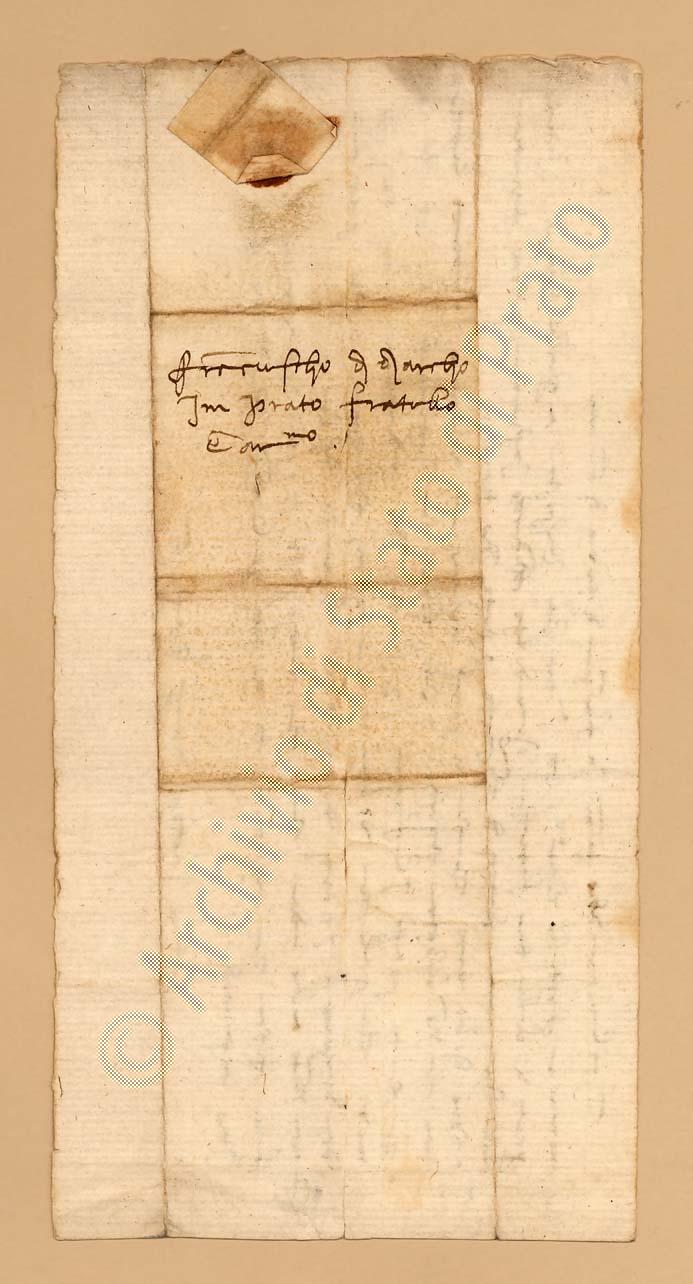 Francischo d Marcho
Im Prato fratello
Car mo.
© Archivio di Stato di Prato